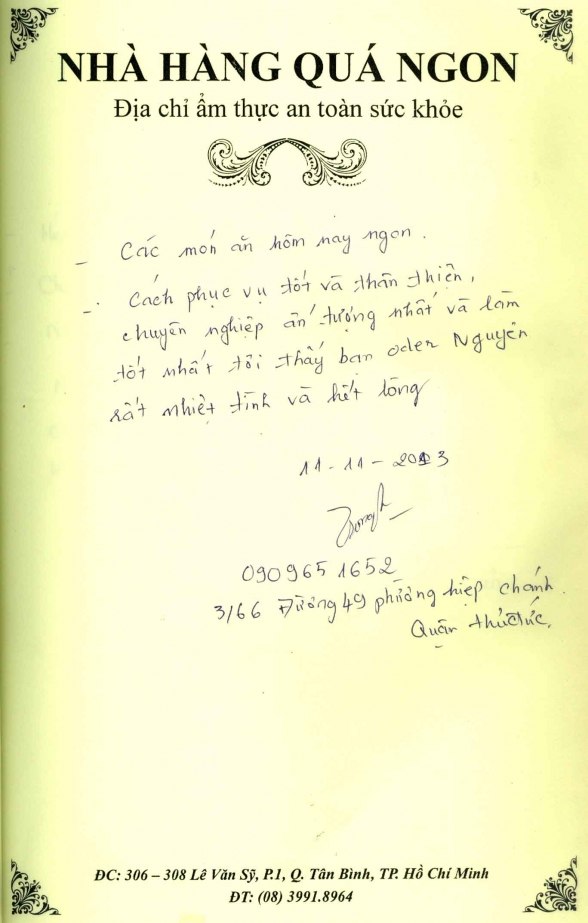 NHÀ HÀNG QUÁ NGON
Địa chỉ ẩm thực an toàn sức khỏe
- Các món ăn hôm nay ngon.
- Cách phục vụ tốt và thân thiện,
chuyên nghiệp ấn tượng nhất và làm
tốt nhất tôi thấy bạn oder Nguyên
rất nhiệt tình và hết lòng
11-11-2013
0909651652
3/66 Đường 49 phường hiệp chánh.
Quận thủ đức,
ĐC: 306 – 308 Lê Văn Sỹ, P.1, Q. Tân Bình, TP. Hồ Chí Minh
ĐT: (08) 3991.8964